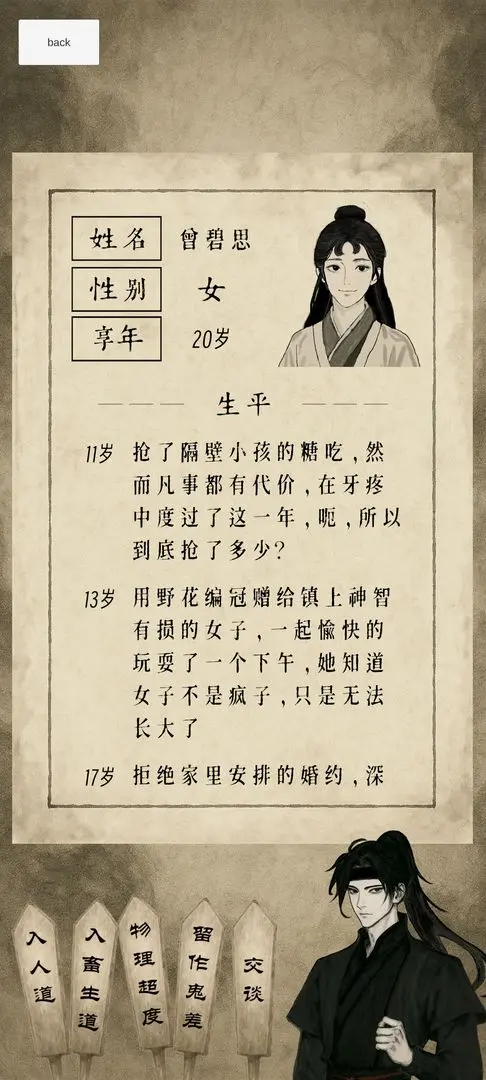 back
姓名 曾碧思
性别 女
享年 20岁
生平
11岁 抢了隔壁小孩的糖吃,然
而凡事都有代价,在牙疼
中度过了这一年,呃,所以
到底抢了多少?
13岁 用野花编冠赠给镇上神智
有损的女子,一起愉快的
玩耍了一个下午,她知道
女子不是疯子,只是无法
长大了
17岁 拒绝家里安排的婚约,深
入人道
入畜生道
物理超度
留作鬼差
交谈